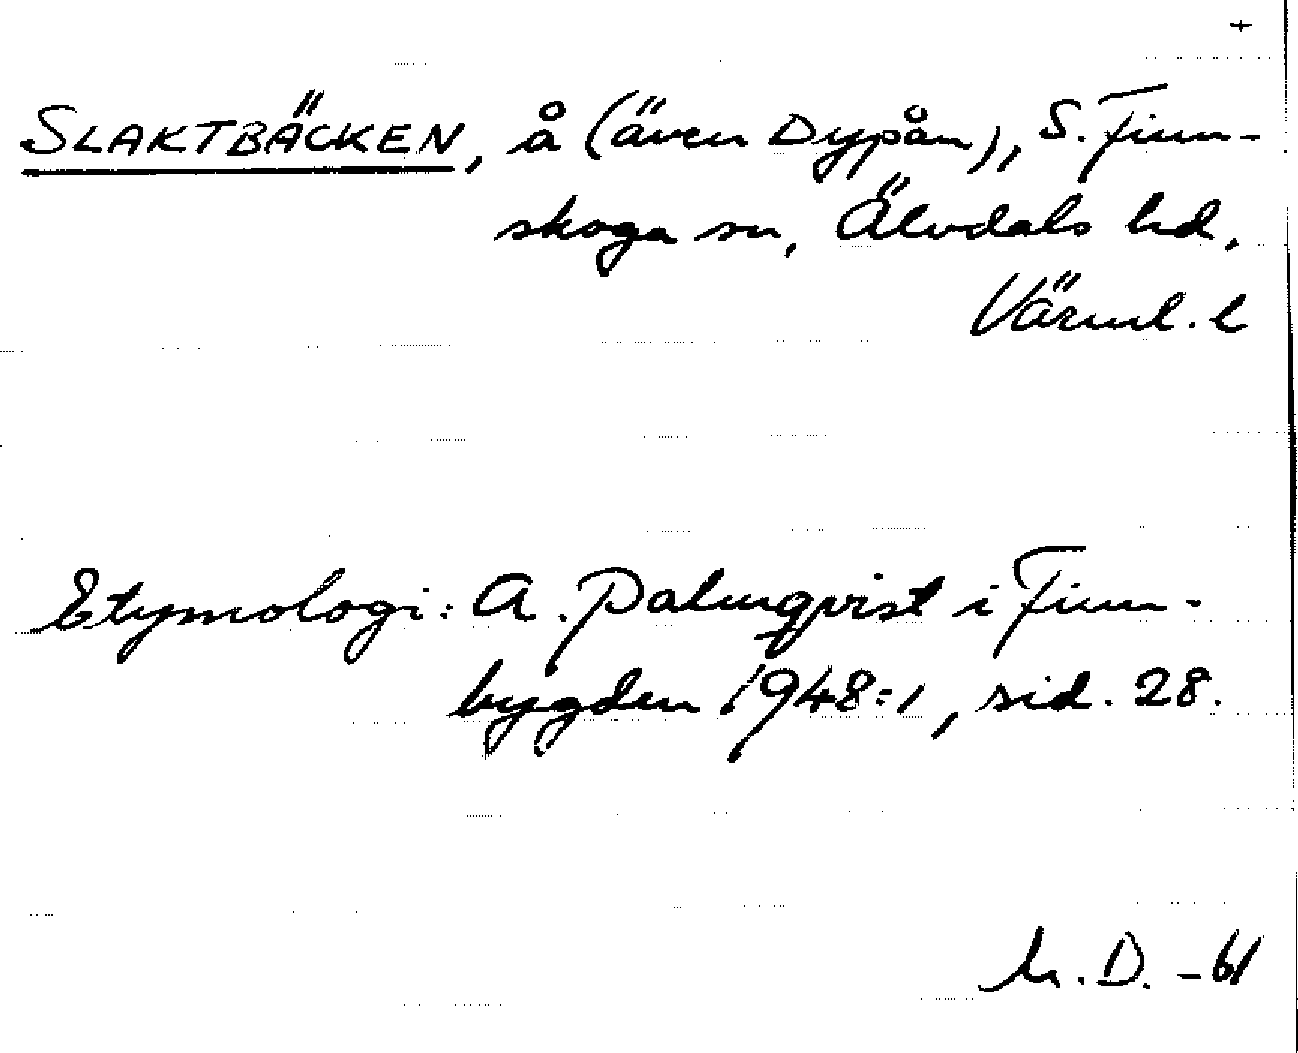 +
SLAKTBÄCKEN, å (även Dypån), S. Finn-
skoga sn, Älvdals hd,
Värml. l
Etymologi: A. Palmqvist i Finn-
bygden 1948:1, sid. 28.
D. -61